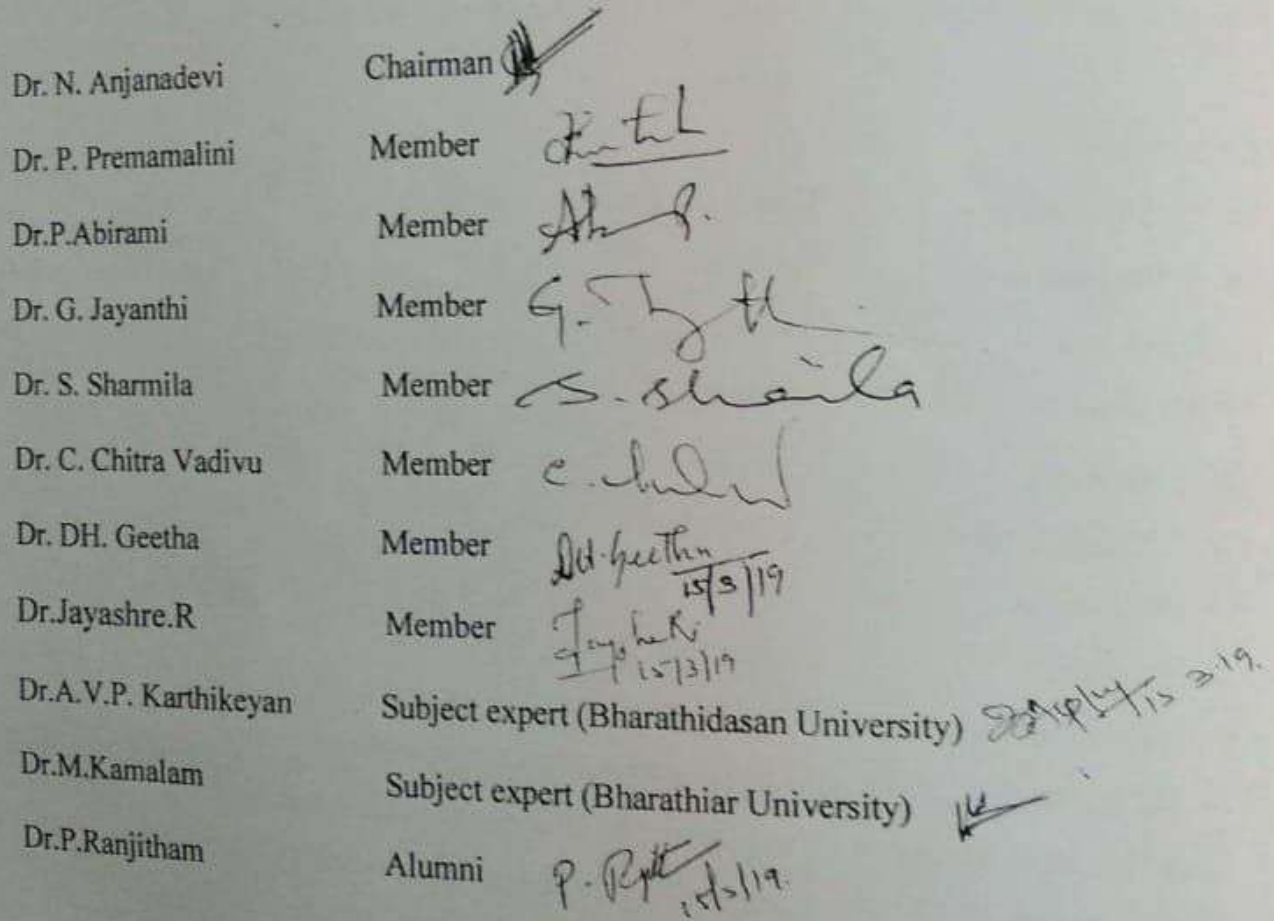 Dr. N. Anjanadevi Chairman
Dr. P. Premamalini Member
Dr.P.Abirami Member
Dr. G. Jayanthi Member G.
Dr. S. Sharmila Member S. Sharmila
Dr. C. Chitra Vadivu Member C.
Dr. DH. Geetha Member DH. Geetha
15/3/19
Dr.Jayashre.R Member
15/3/19
Dr.A.V.P. Karthikeyan Subject expert (Bharathidasan University) 15 3.19.
Dr.M.Kamalam Subject expert (Bharathiar University)
Dr.P.Ranjitham Alumni P. 15/3/19.